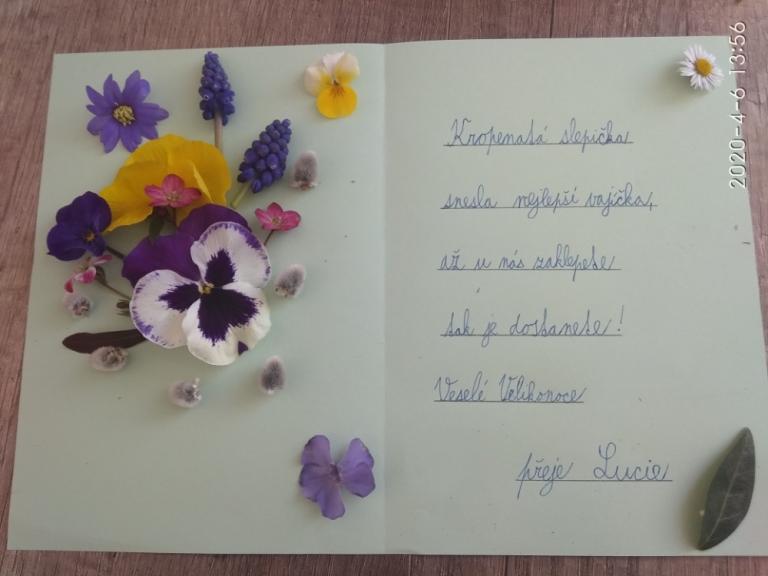 Kropenatá slepička
snesla nejlepší vajíčka,
až u nás zaklepete
tak je dostanete!
Veselé Velikonoce
přeje Lucie
2020-4-6 13:56